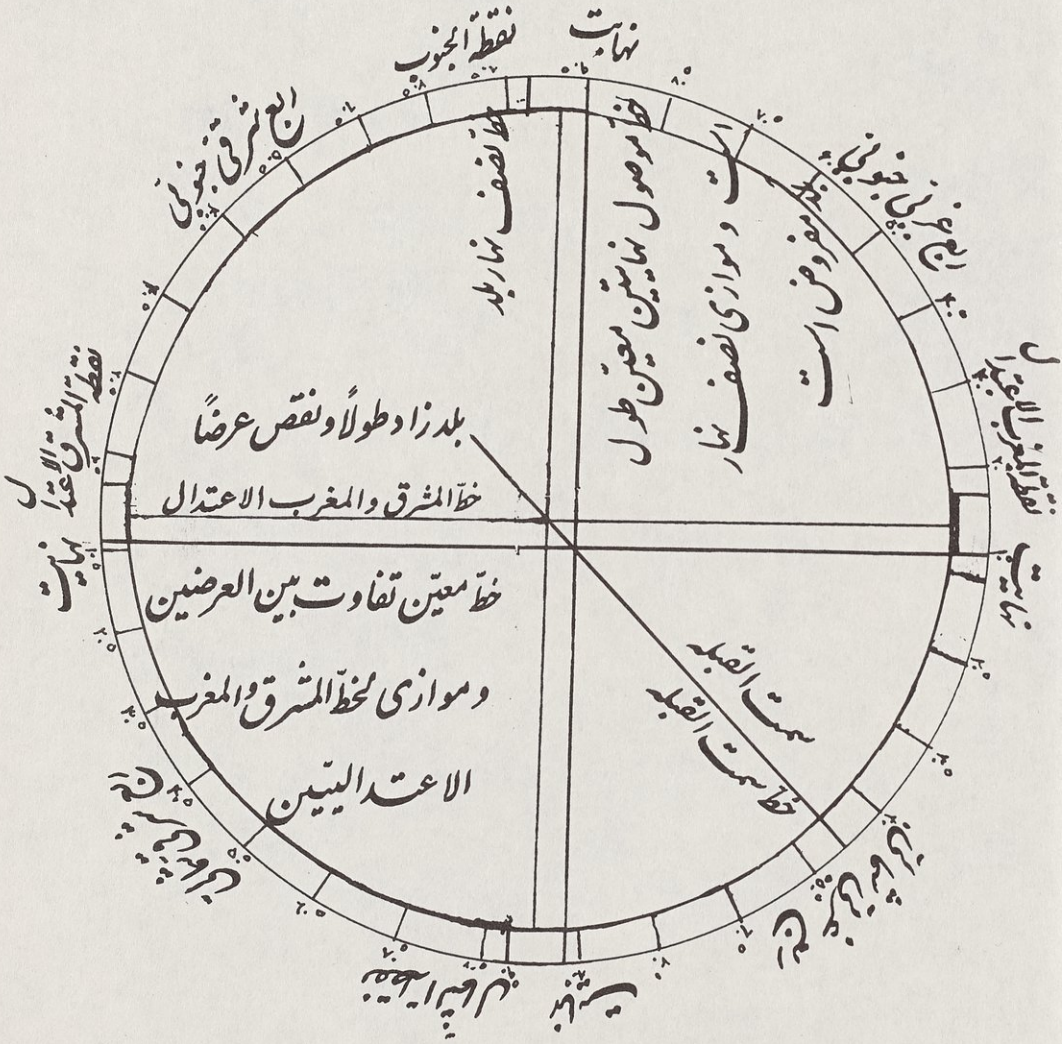 نهایت
نقطة الجنوب
ربع شرقی جنوبی
ربع غربی جنوبی
نقطة المشرق الاعتدال
نقطة المغرب الاعتدال
نهایت
نهایت
خط نصف نهار بلد
خط موصول نهایتین معیّن طول
است و موازی نصف نهار
مفروض است
بلد زاد طولًا و نقص عرضًا
خطّ المشرق والمغرب الاعتدال
خطّ معیّن تفاوت بین العرضین
و موازی لخطّ المشرق والمغرب
الاعتدالیّین
سمت القبله
خط سمت القبله
نقطة الشمال
نهایت